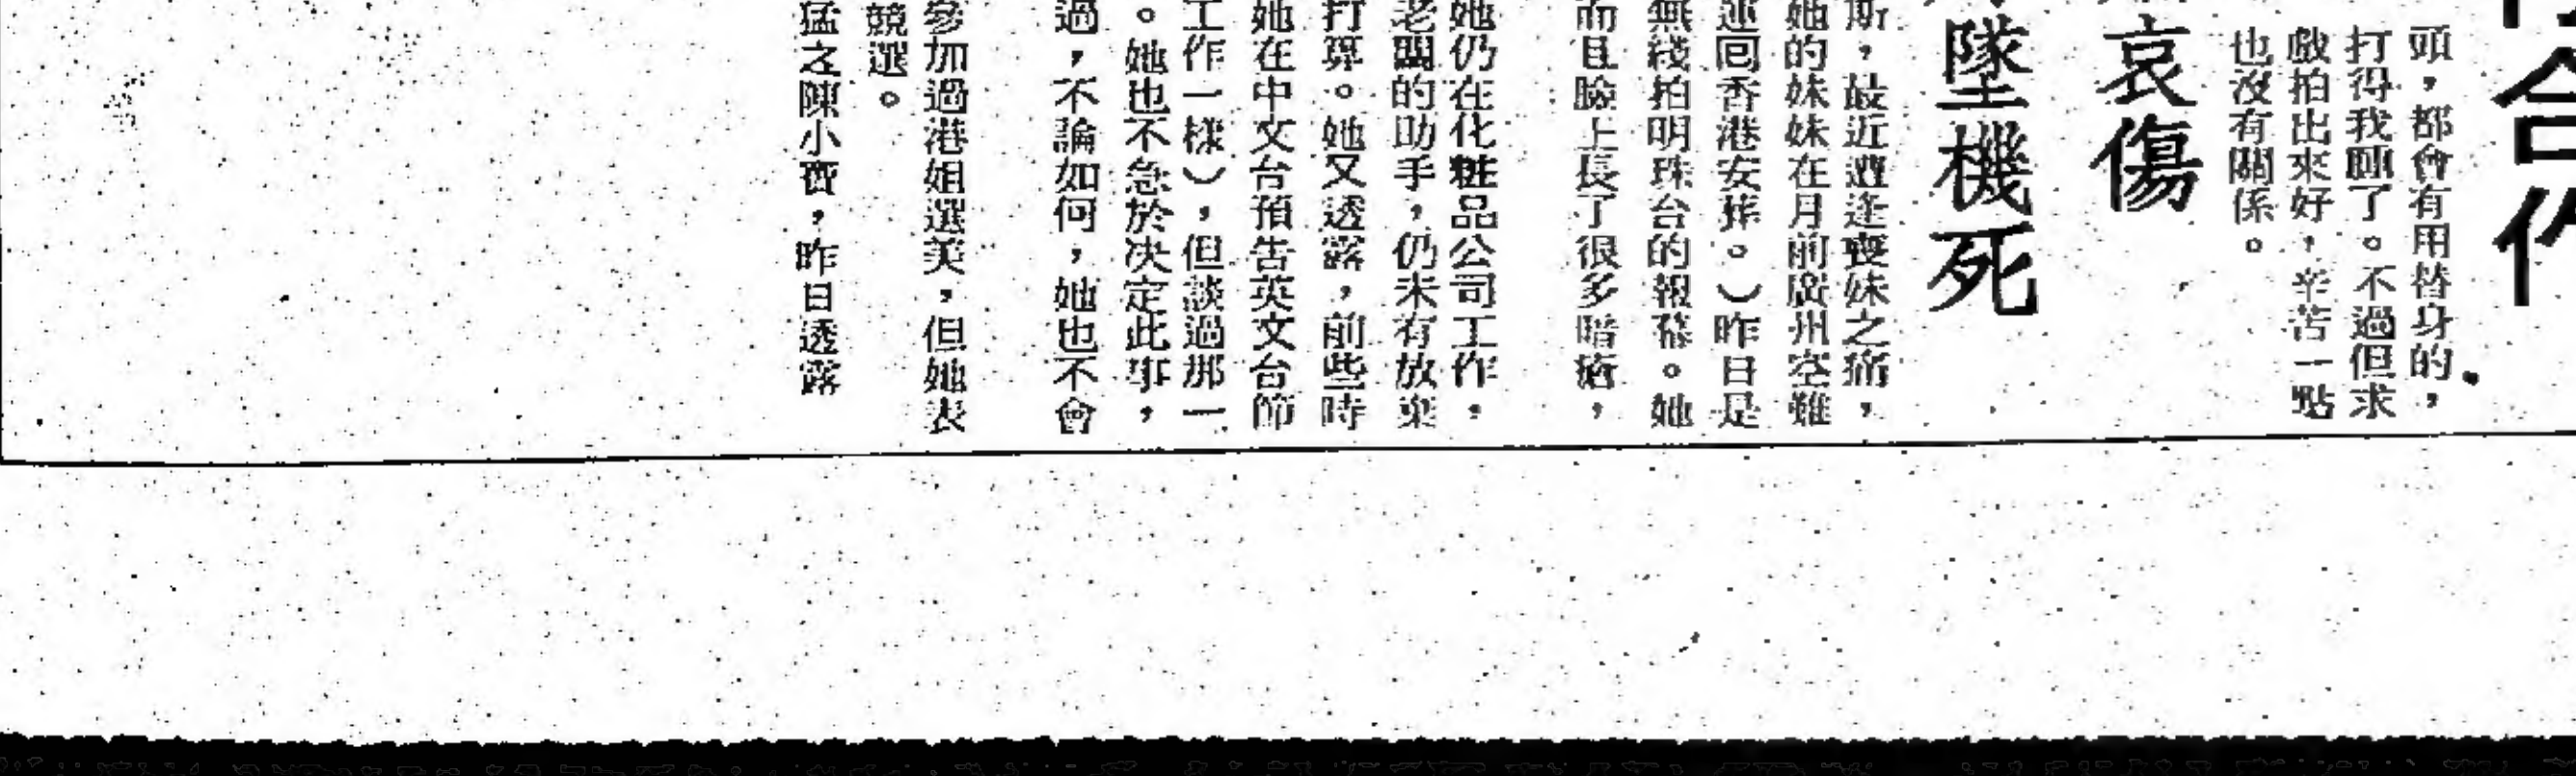 合作
頭，都會有用替身的，
打得我腫了。不過但求
戲拍出來好，辛苦一點
也沒有關係。
哀傷
墜機死
斯，最近遭逢喪妹之痛，
她的妹妹在月前廣州空難
運回香港安葬。）昨日是
無綫拍明珠台的報幕。她
而且臉上長了很多暗瘡，
她仍在化粧品公司工作，
老闆的助手，仍未有放棄
打算。她又透露，前些時
她在中文台預告英文台節
工作一樣），但談過那一
。她也不急於决定此事，
過，不論如何，她也不會
參加過港姐選美，但她表
競選。
猛之陳小寶，昨日透露